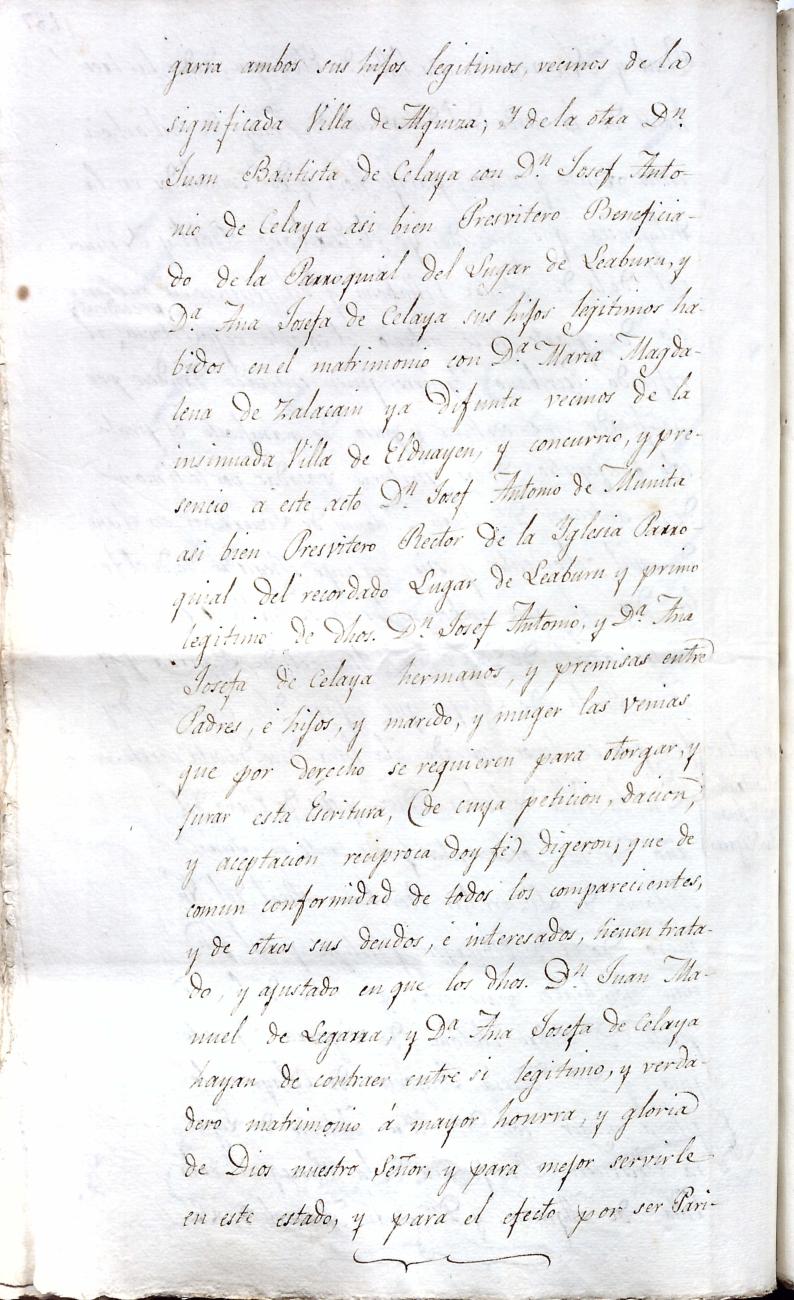 garra ambos sus hijos legitimos, vecinos de la
significada Villa de Alquiza; Y de la otra Dn.
Juan Bautista de Celaya con Dn. Josef Anto-
nio de Celaya asi bien Presvitero Beneficia-
do de la Parroquial del Lugar de Leaburu, y
Da. Ana Josefa de Celaya sus hijos legitimos ha-
bidos en el matrimonio con Da. Maria Magda-
lena de Zalacain ya difunta vecinos de la
insinuada Villa de Elduayen, y concurrio, y pre-
sencio á este acto Dn. Josef Antonio de Munita
asi bien Presvitero Rector de la Yglesia Parro-
quial del recordado Lugar de Leaburu y primo
legitimo de dhos. Dn. Josef Antonio, y Da. Ana
Josefa de Celaya hermanos, y premisas entre
Padres, é hijos, y marido, y muger las venias
que por derecho se requieren para otorgar, y
jurar esta Escritura, (de cuya peticion, dacion,
y aceptacion reciproca doy fé) digeron, que de
comun conformidad de todos los comparecientes,
y de otros sus deudos, é interesados, tienen trata-
do, y ajustado en que los dhos. Dn. Juan Ma-
nuel de Legarra, y Da. Ana Josefa de Celaya
hayan de contraer entre si legitimo, y verda-
dero matrimonio á mayor honrra, y gloria
de Dios nuestro Señor, y para mejor servirle
en este estado, y para el efecto por ser Pari-